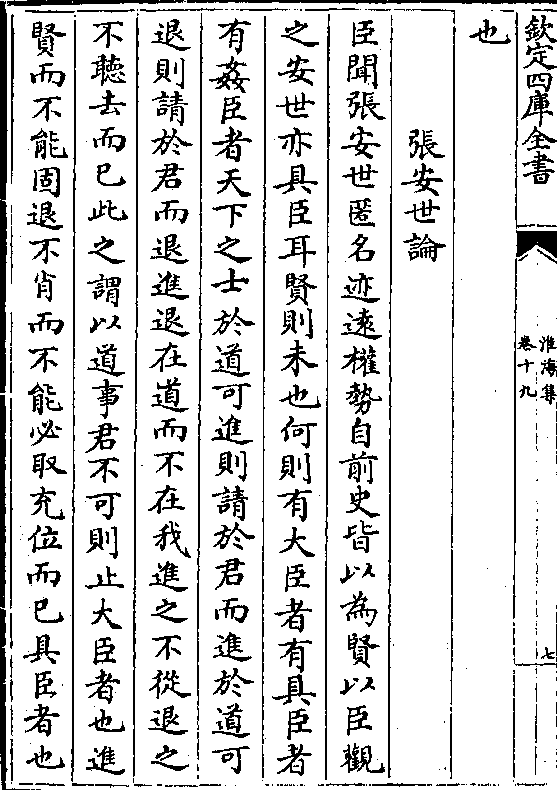 欽定四庫全書
淮海集
卷十九
七
也
張安世論
臣聞張安世匿名迹遠權勢自前史皆以為賢以臣觀
之安世亦具臣耳賢則未也何則有大臣者有具臣者
有姦臣者天下之士於道可進則請於君而進於道可
退則請於君而退進退在道而不在我進之不從退之
不聽去而已此之謂以道事君不可則止大臣者也進
賢而不能固退不肖而不能必取充位而已具臣者也